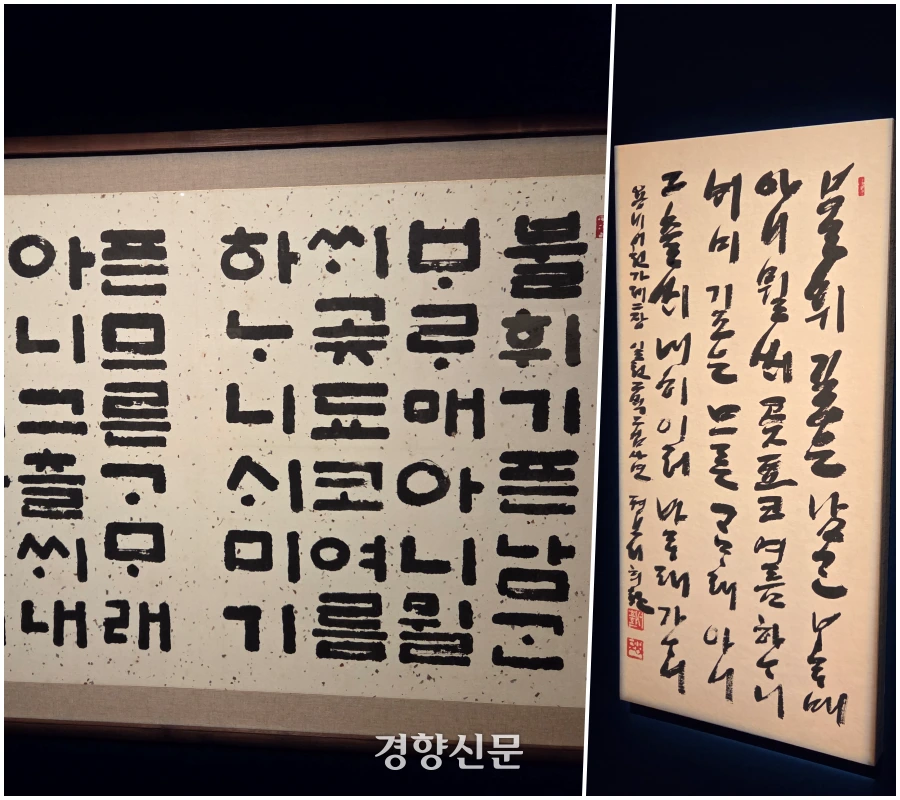 불휘기픈남ᄀᆞᆫ
ᄇᆞᄅᆞ매아니뮐
ᄊᆡ곶됴코여름
하ᄂᆞ니ᄉᆡ미기
픈므른ᄀᆞᄆᆞ래
아니그츨ᄊᆡ내
불휘 깊은 남ᄀᆞᆫ ᄇᆞᄅᆞ매
아니 뮐ᄊᆡ 곶 됴코 여름 하ᄂᆞ니
ᄉᆡ미 기픈 므른 ᄀᆞᄆᆞ래 아니
그츨ᄊᆡ 내히 이러 바ᄅᆞ래 가ᄂᆞ니
용비어천가 제이장 평보 서희환
경향신문